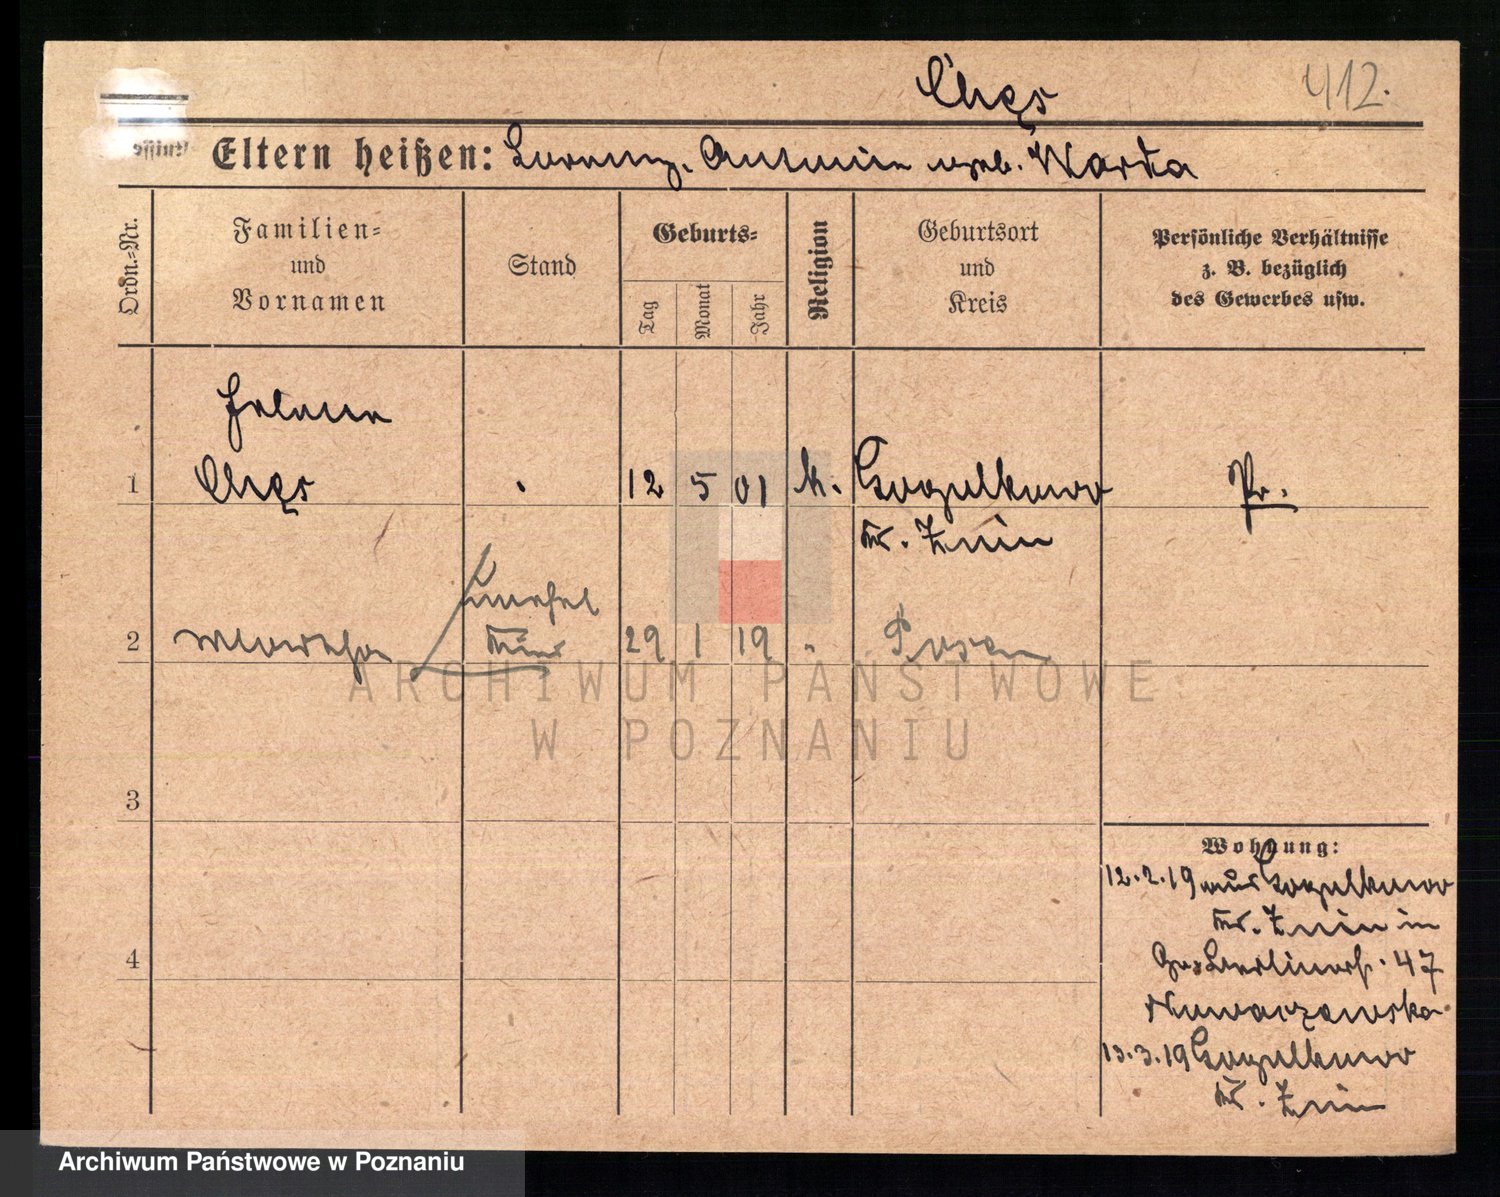 Chęs
412.
Eltern heißen: Lorenz. Antonie geb. Warda
Ordn.-Nr.
Familien-
und
Vornamen
Stand
Geburts-
Tag
Monat
Jahr
Religion
Geburtsort
und
Kreis
Persönliche Verhältnisse
z. B. bezüglich
des Gewerbes usw.
Helene
1 Chęs 12 5 01 k. Gogulkowo Pr.
Kr. Znin
unehel
2 Kind 29 1 19 " Posen
3
Wohnung:
12.2.19 aus Gogulkowo
Kr. Znin in
47
4
13.3.19 Gogulkowo
Kr. Znin
ARCHIWUM PAŃSTWOWE
W POZNANIU
Archiwum Państwowe w Poznaniu